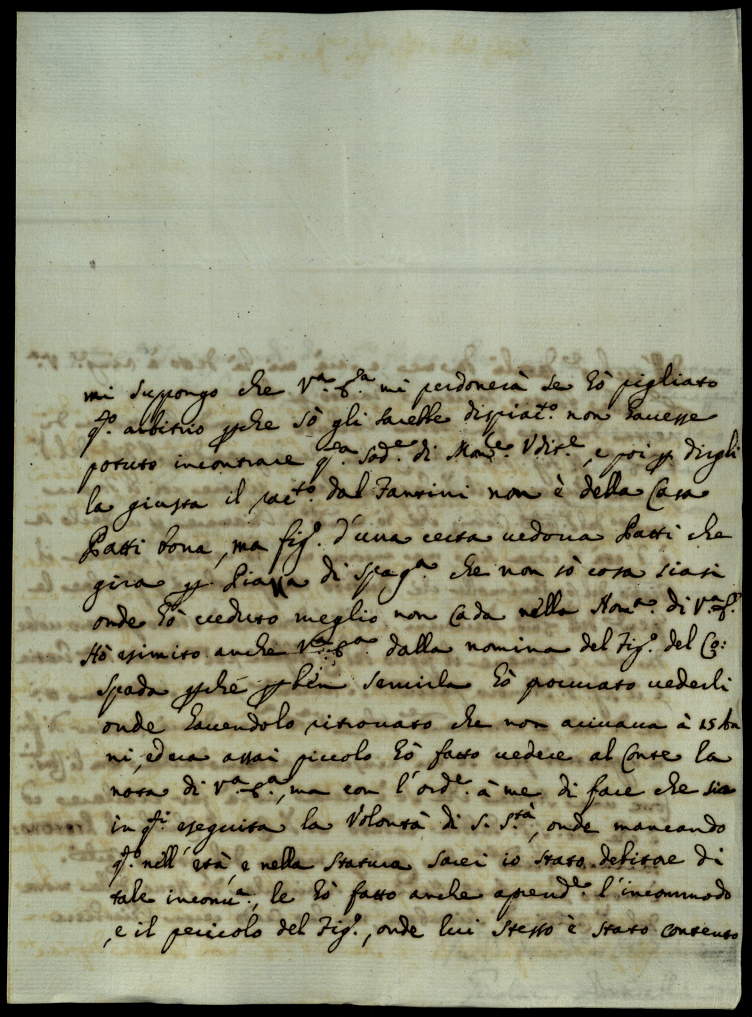 mi suppongo che V.a E.a mi perdonerà se hò pigliato
q.o arbitrio p.che sò gli sarebbe dispiac.to non havesse
potuto incontrare q.ea sod.e di Mon.re Udit.e, e poi p. dirgli
la giusta il rac.to dal Fantini non è della Casa
Patti bona, ma fig.o d'una certa vedova Patti che
gira p. Piazza di Spag.a che non sò cosa siasi
onde hò creduto meglio non cada nella Nom.a di V.a E.
Hò esimito anche V.a E.a dalla nomina del Fig.o del Co:
Spada p.ché p. ben servirla hò procurato vederli
onde havendolo ritrovato che non arivava à 15 An
ni, ed era assai piccolo hò fatto vedere al Conte la
nota di V.a E.a, ma con l'ord.e à me di fare che sia
in q.ti eseguita la Volontà di S. S.tà, onde mancando
q.o nell'età, e nella statura sarei io stato debitore di
tale inconv.e, le hò fatto anche apend.e l'incommodo
, e il pericolo del Fig.o, onde lui stesso è stato contento